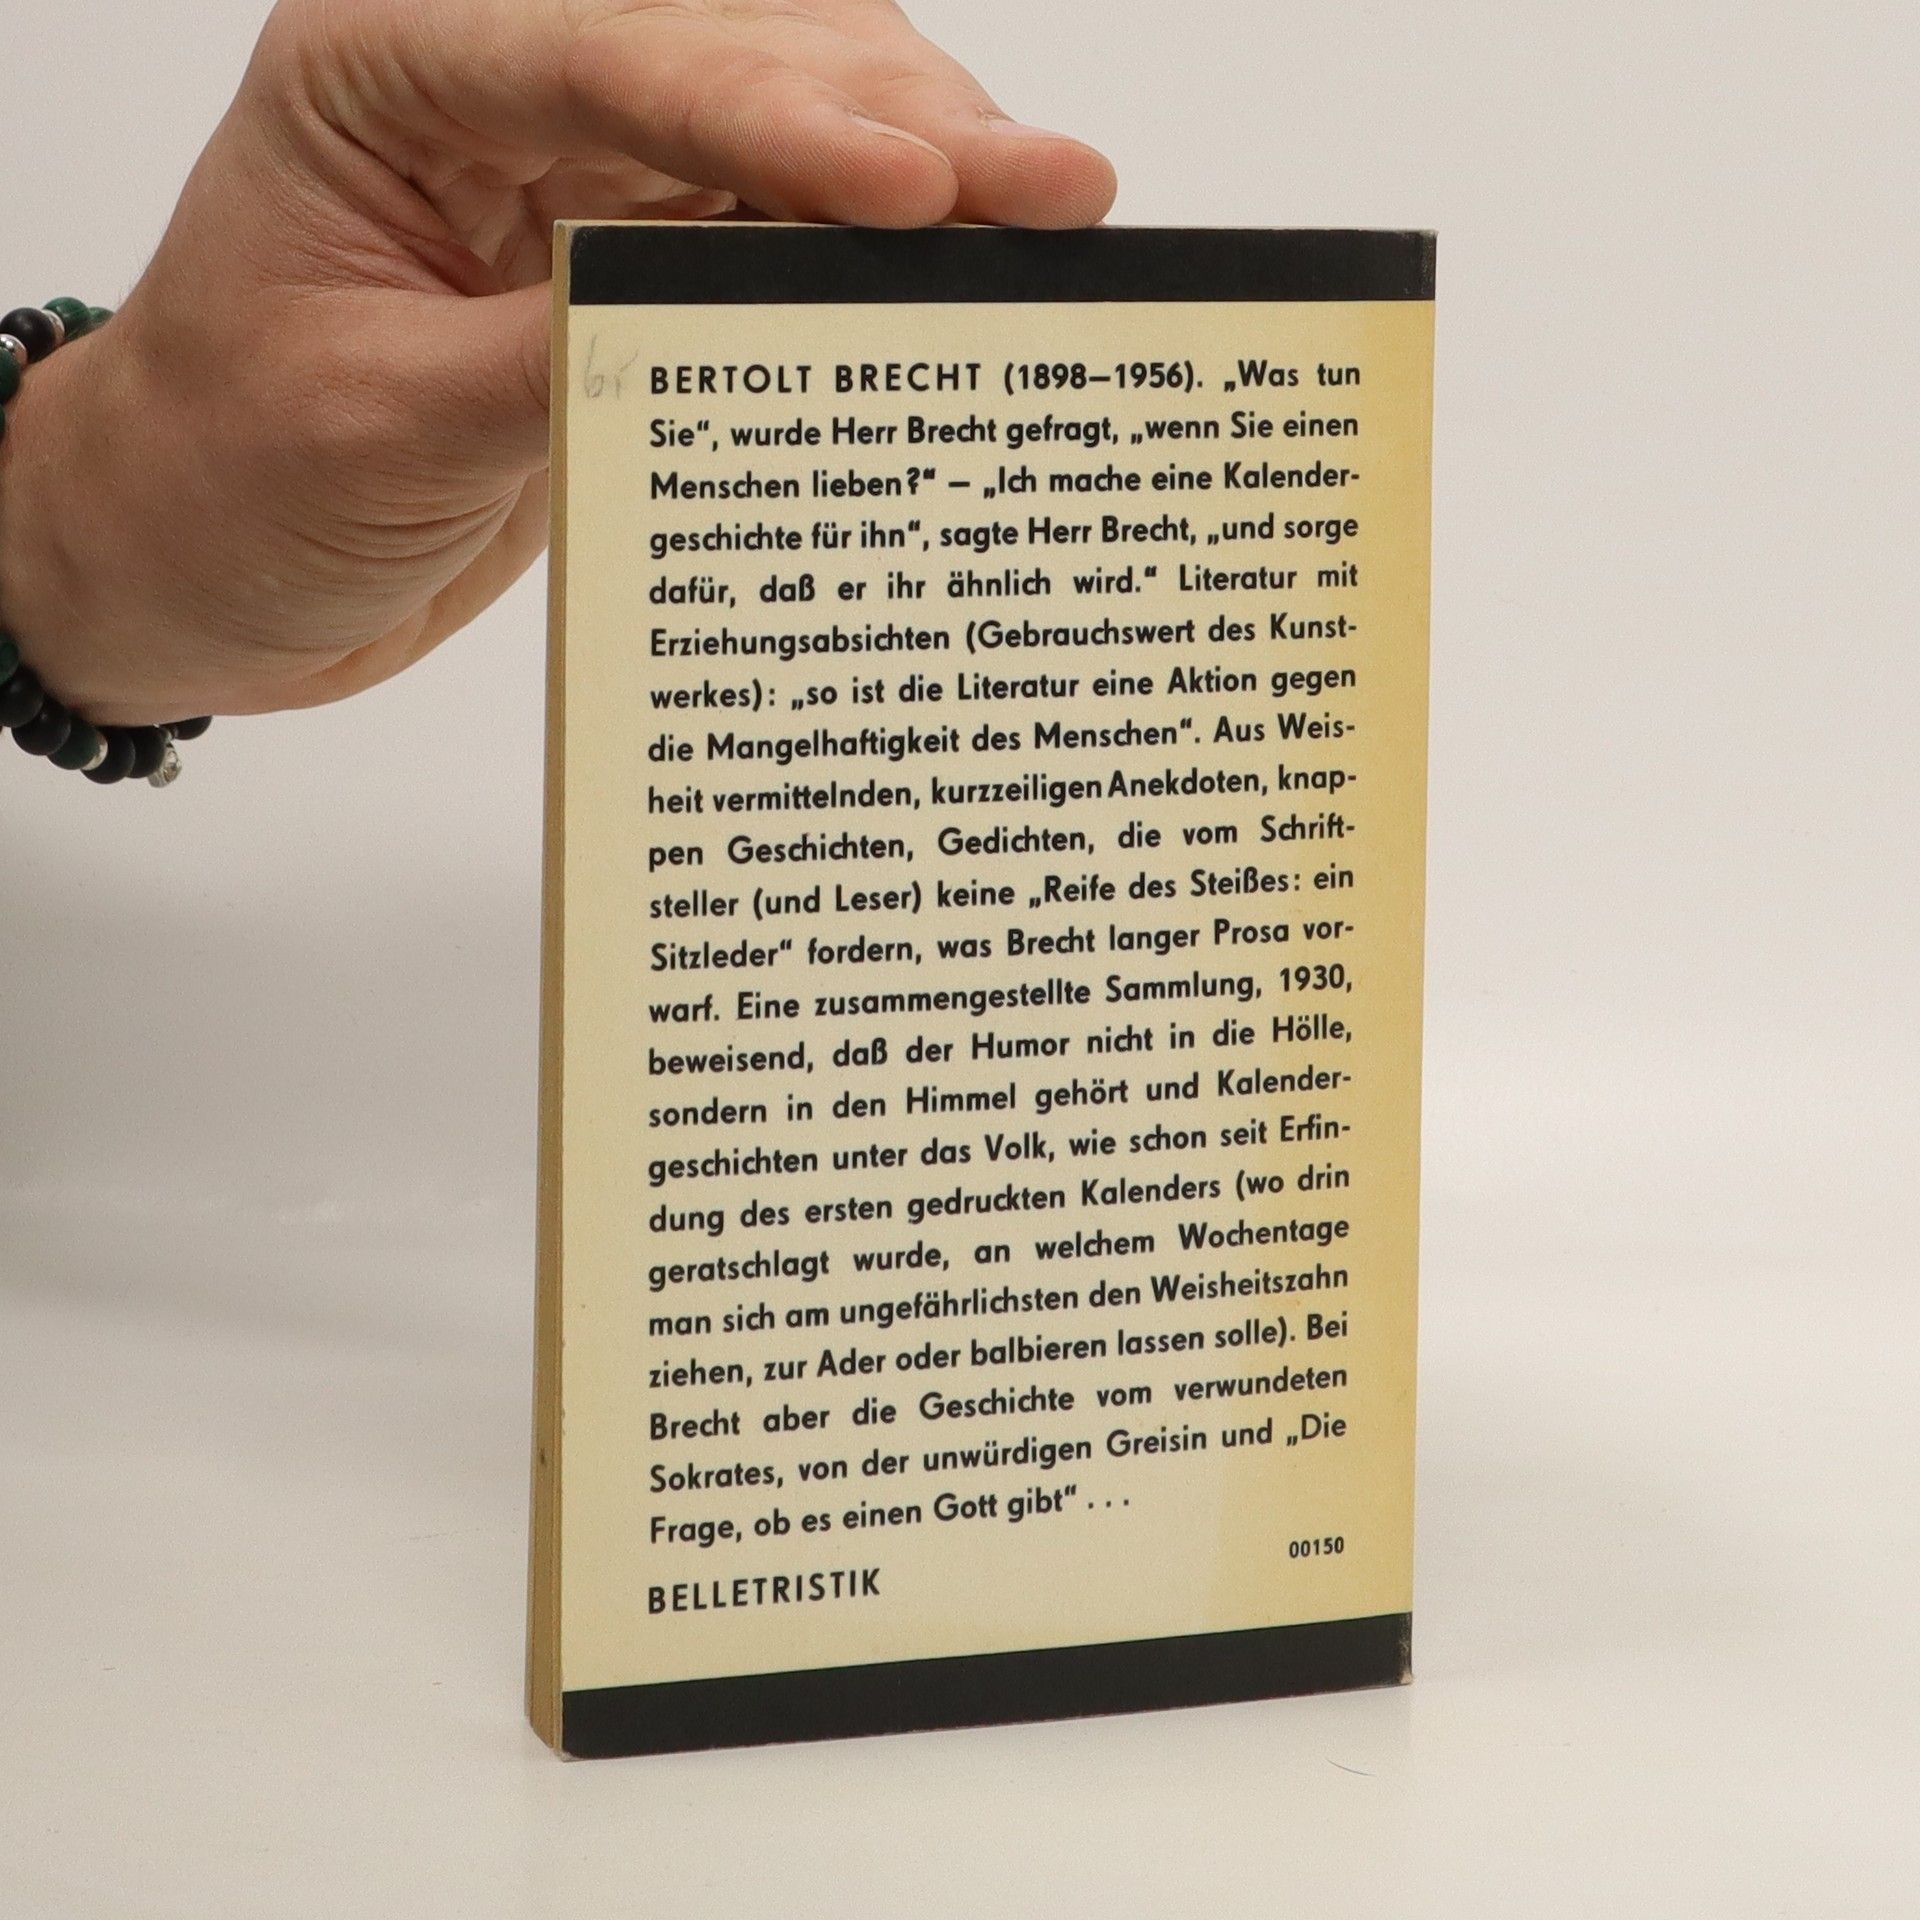 BERTOLT BRECHT (1898–1956). „Was tun
Sie“, wurde Herr Brecht gefragt, „wenn Sie einen
Menschen lieben?“ – „Ich mache eine Kalender-
geschichte für ihn“, sagte Herr Brecht, „und sorge
dafür, daß er ihr ähnlich wird.“ Literatur mit
Erziehungsabsichten (Gebrauchswert des Kunst-
werkes): „so ist die Literatur eine Aktion gegen
die Mangelhaftigkeit des Menschen“. Aus Weis-
heit vermittelnden, kurzzeiligen Anekdoten, knap-
pen Geschichten, Gedichten, die vom Schrift-
steller (und Leser) keine „Reife des Steißes: ein
Sitzleder“ fordern, was Brecht langer Prosa vor-
warf. Eine zusammengestellte Sammlung, 1930,
beweisend, daß der Humor nicht in die Hölle,
sondern in den Himmel gehört und Kalender-
geschichten unter das Volk, wie schon seit Erfin-
dung des ersten gedruckten Kalenders (wo drin
geratschlagt wurde, an welchem Wochentage
man sich am ungefährlichsten den Weisheitszahn
ziehen, zur Ader oder balbieren lassen solle). Bei
Brecht aber die Geschichte vom verwundeten
Sokrates, von der unwürdigen Greisin und „Die
Frage, ob es einen Gott gibt“ . . .
00150
BELLETRISTIK